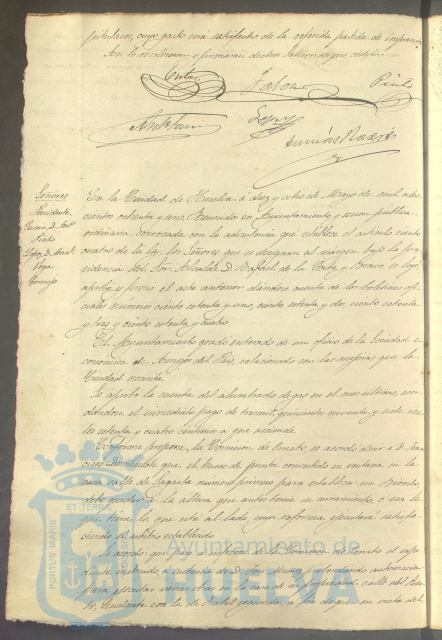 titulares, cuyo gasto será satisfecho de la referida partida de imprevistos
Así lo resolvieron y firmarán dichos Señores de que certifico.
Pinto
López
Señores
Presidente
Pinto
López, D. Manl
Vega
Cornejo
En la Ciudad de Huelva á diez y ocho de Mayo de mil ocho
cientos ochenta y uno. Reunidos en Ayuntamiento y sesion publica
ordinaria convocada con la advertencia que establece el articulo ciento
cuatro de la ley, los Señores que se designan al margen, bajo la pre
sidencia del Sor. Alcalde D. Rafael de la Corte y Bravo se leyó
aprobó y firmó el acta anterior dándose cuenta de los boletines ofi
ciales numeros ciento setenta y uno, ciento setenta y dos, ciento setenta
y tres y ciento setenta y cuatro.
El Ayuntamiento quedó enterado de un oficio de la Sociedad e
conómica de Amigos del País, relacionado con las mejoras que la
Ciudad necesita.
Se aprobó la cuenta del alumbrado de gas en el mes ultimo, acor
dándose el inmediato pago de tresmil quinientos noventa y siete rea
les setenta y cuatro céntimos a que asciende.
Conforme propone la Comision de Ornato se acordó decir a D. Fran
cisco que el hueco de puerta convertido en ventana en la
casa calle de Sagasta numero primero para establecer un
debe quedar á la altura que antes tenia su cerramiento ó sea la
que tiene la que está al lado, cuya reforma ejecutará satisfa
ciendo el arbitrio establecido.
Se acordó que pase a informe de la Comision de Ornato el espe
diente instruido a instancia de D. José solicitando autorizacion
para ejecutar varias obras en la casa de su propiedad calle del Puer
to, lindante con la de Isabel segunda, a fin de que en vista del
PORTUS MARIS ET TERRAE
Ayuntamiento de
HUELVA